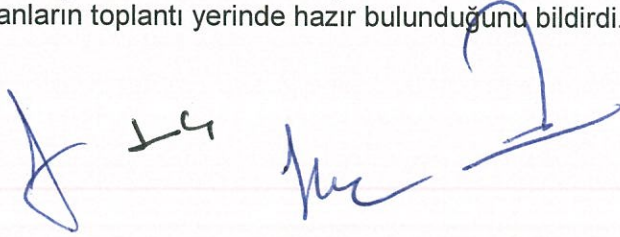 anların toplantı yerinde hazır bulunduğunu bildirdi.